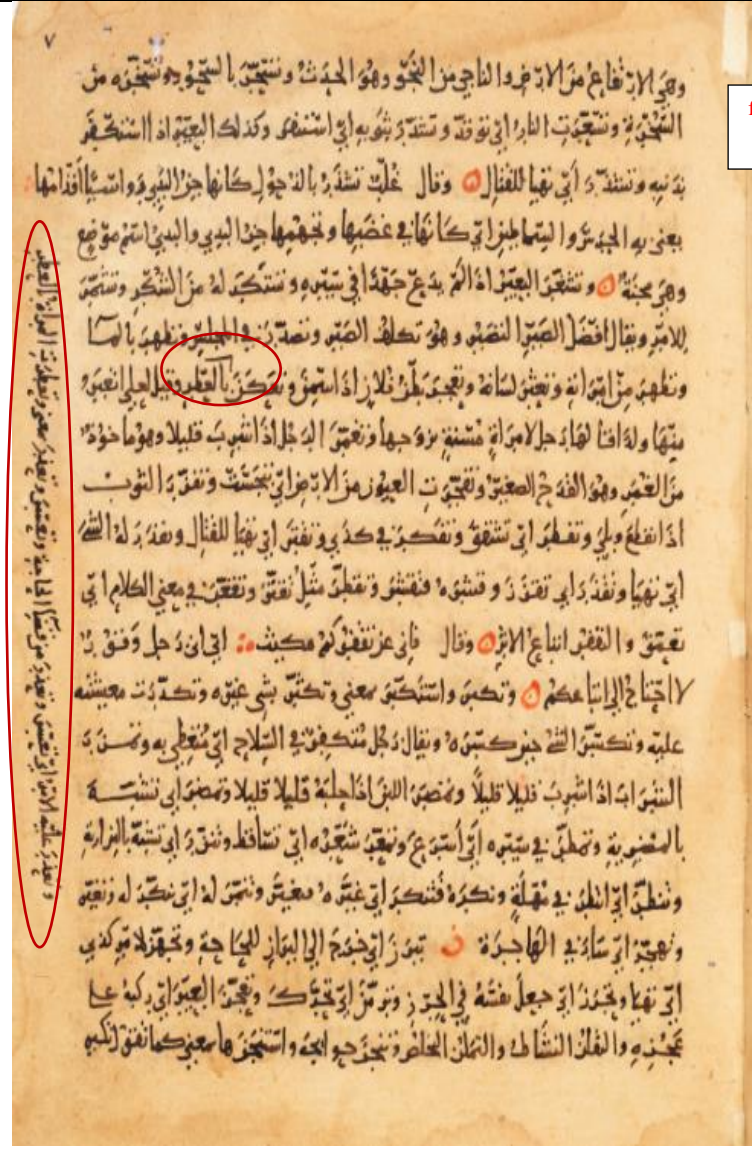 ٧
وهي الارتفاع من الارض والناجي من النجو وهو الحدث وتسحر بالسحور
السخرية وتسعرت النار اي توقد وتشذر بثوبه اي استثفر وكذلك البعير اذا استثفر
بذنبه وتشذر اي تهيا للقتال وقال غلب تشذر بالذحول كانها جن البدي رواسيا اقدامها
يعني به اي كانها في غضبها وتجهمها جن البدي والبدي اسم موضع
وهي مجنة وتشعر البعير اذا لم يدع جهدا في سيره وتشكر له من الشكر وتشمر
للامر ويقال افضل الصبر التصبر وهو تكلف الصبر وتصدر في المجلس وتطهر بالماء
وتظهر من امراته وتعثر لسانه وتعجر بطن فلان اذا سمن وتعكر
منها ولدا فقالها رجل لامراة مسنة تزوجها وتغمر الرجل اذا شرب قليلا وهو ماخوذ
من الغمر وهو القدح الصغير وتفجرت العيون من الارض اي تبجست وتفزر الثوب
اذا تقطع وبلي وتفطر اي تشقق وتفكر في كذي وتقتر اي تهيا للقتال وتقدر له الشي
اي تهيا وتقذر اي تقزز وقشره فتقشر وتقطر مثل تقتر وتقعر في معني الكلام اي
تعمق والتقفر اتباع الاثر وقال فاني عن تقفركم مكيث اي اني رجل وقور
لا احتاج الي اتباعكم وتكبر واستكبر بمعني وتكثر بشي غيره وتكدرت معيشته
عليه وتكسر الشي حين كسره ويقال رجل متكفر في السلاح اي متغطي به وتمزر
الشراب اذا شرب قليلا قليلا وتمصر اللبن اذا حلبه قليلا قليلا وتمضر اي تشبه
بالمضرية وتمطر في سيره اي اسرع وتمعر شعره اي تساقط وتنزر اي تشبه بالنزارية
وتنظر اي انتظر في مهلة ونكره فتنكر اي غيره فتغير وتنمر له اي تنكر له وتغير
وتهجر اي سار في الهاجرة تبرز اي خرج الي البراز للحاجة وتجهز لامر كذي
اي تهيا وتحرز اي جعل نفسه في الحرز وترمز اي تحرك وتعجز البعير اي ركبه علي
عجزه والتملز التخلص وتنجز حوايجه واستنجزها بمعني كما تقول تكبر
وتعذر عليه الامر اي تعسر وتعذر من قضا الحاجة وتعسر وتعذر بمعني وتعطرت المراة بالعطر